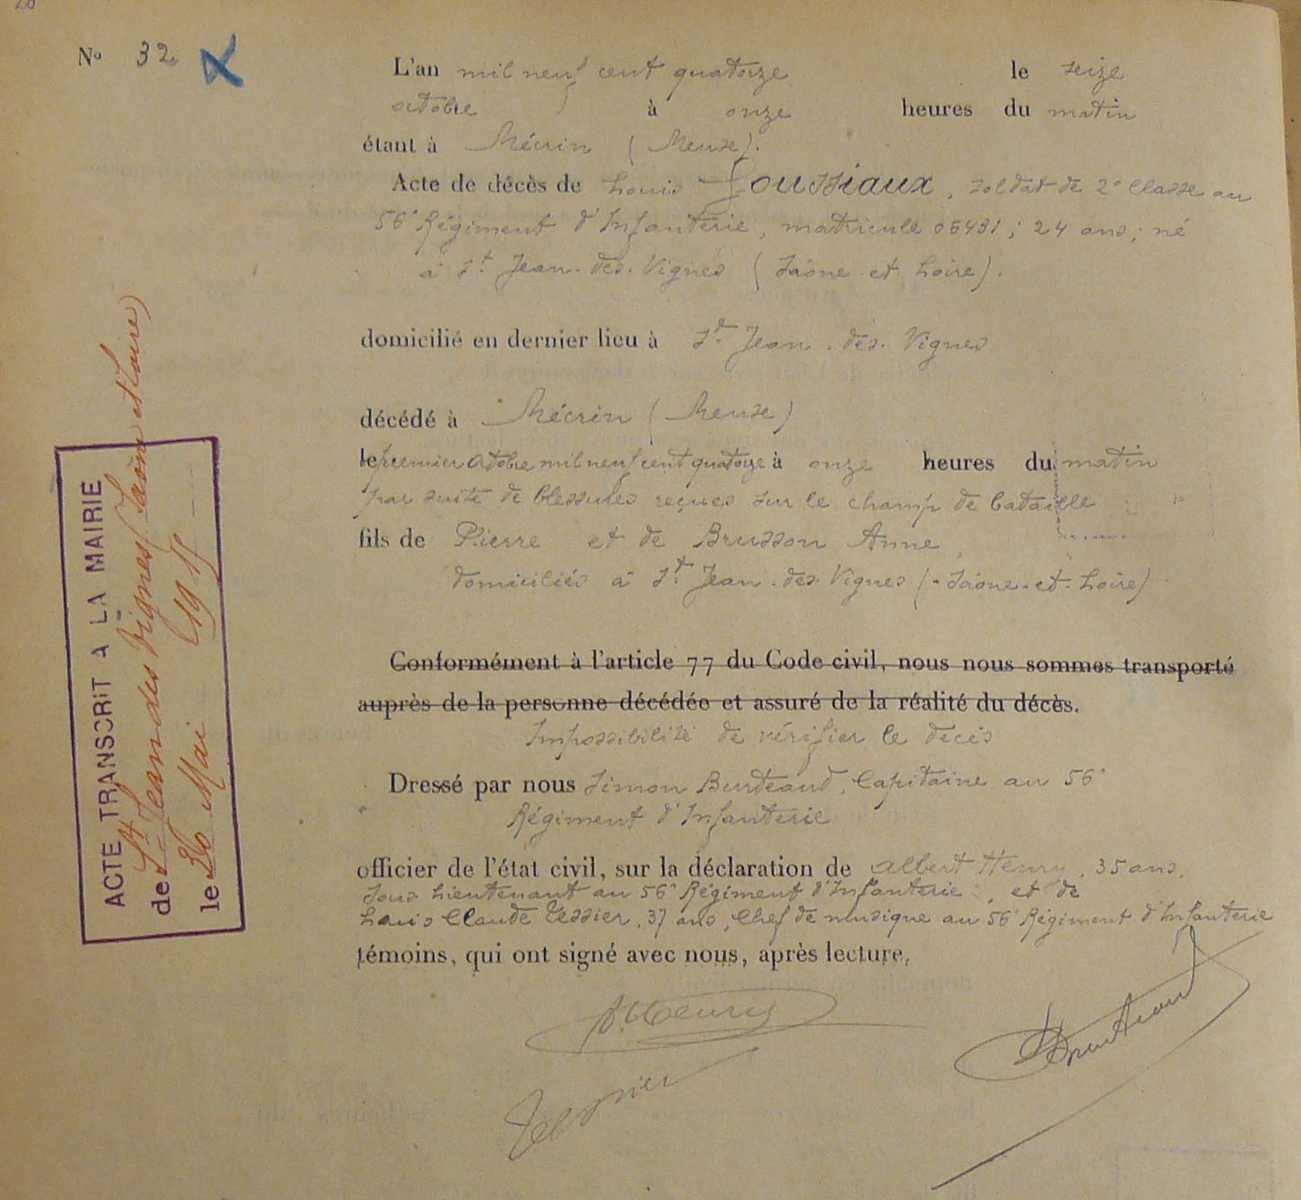 Nº 32
L'an mil neuf cent quatorze le seize
octobre à onze heures du matin
étant à Mécrin (Meuse).
Acte de décès de Louis Goussiaux, soldat de 2e classe au
56e Régiment d'Infanterie, matricule 06431; 24 ans; né
à St Jean-des-Vignes (Saône-et-Loire).
domicilié en dernier lieu à St Jean-des-Vignes
décédé à Mécrin (Meuse)
le premier octobre mil neuf cent quatorze à onze heures du matin
par suite de blessures reçues sur le champ de bataille
fils de Pierre et de Brusson Anne,
domiciliés à St Jean-des-Vignes (Saône-et-Loire)
Conformément à l'article 77 du Code civil, nous nous sommes transporté
auprès de la personne décédée et assuré de la réalité du décès.
Impossibilité de vérifier le décès
Dressé par nous Simon Burteaud, Capitaine au 56e
Régiment d'Infanterie
officier de l'état civil, sur la déclaration de Albert Henry, 35 ans,
sous Lieutenant au 56e Régiment d'Infanterie, et de
Louis Claude Tessier, 37 ans, Chef de musique au 56e Régiment d'Infanterie
témoins, qui ont signé avec nous, après lecture.
A. Henry
ACTE TRANSCRIT A LA MAIRIE
de St Jean des Vignes (Saône et Loire)
le 26 Mai 1915